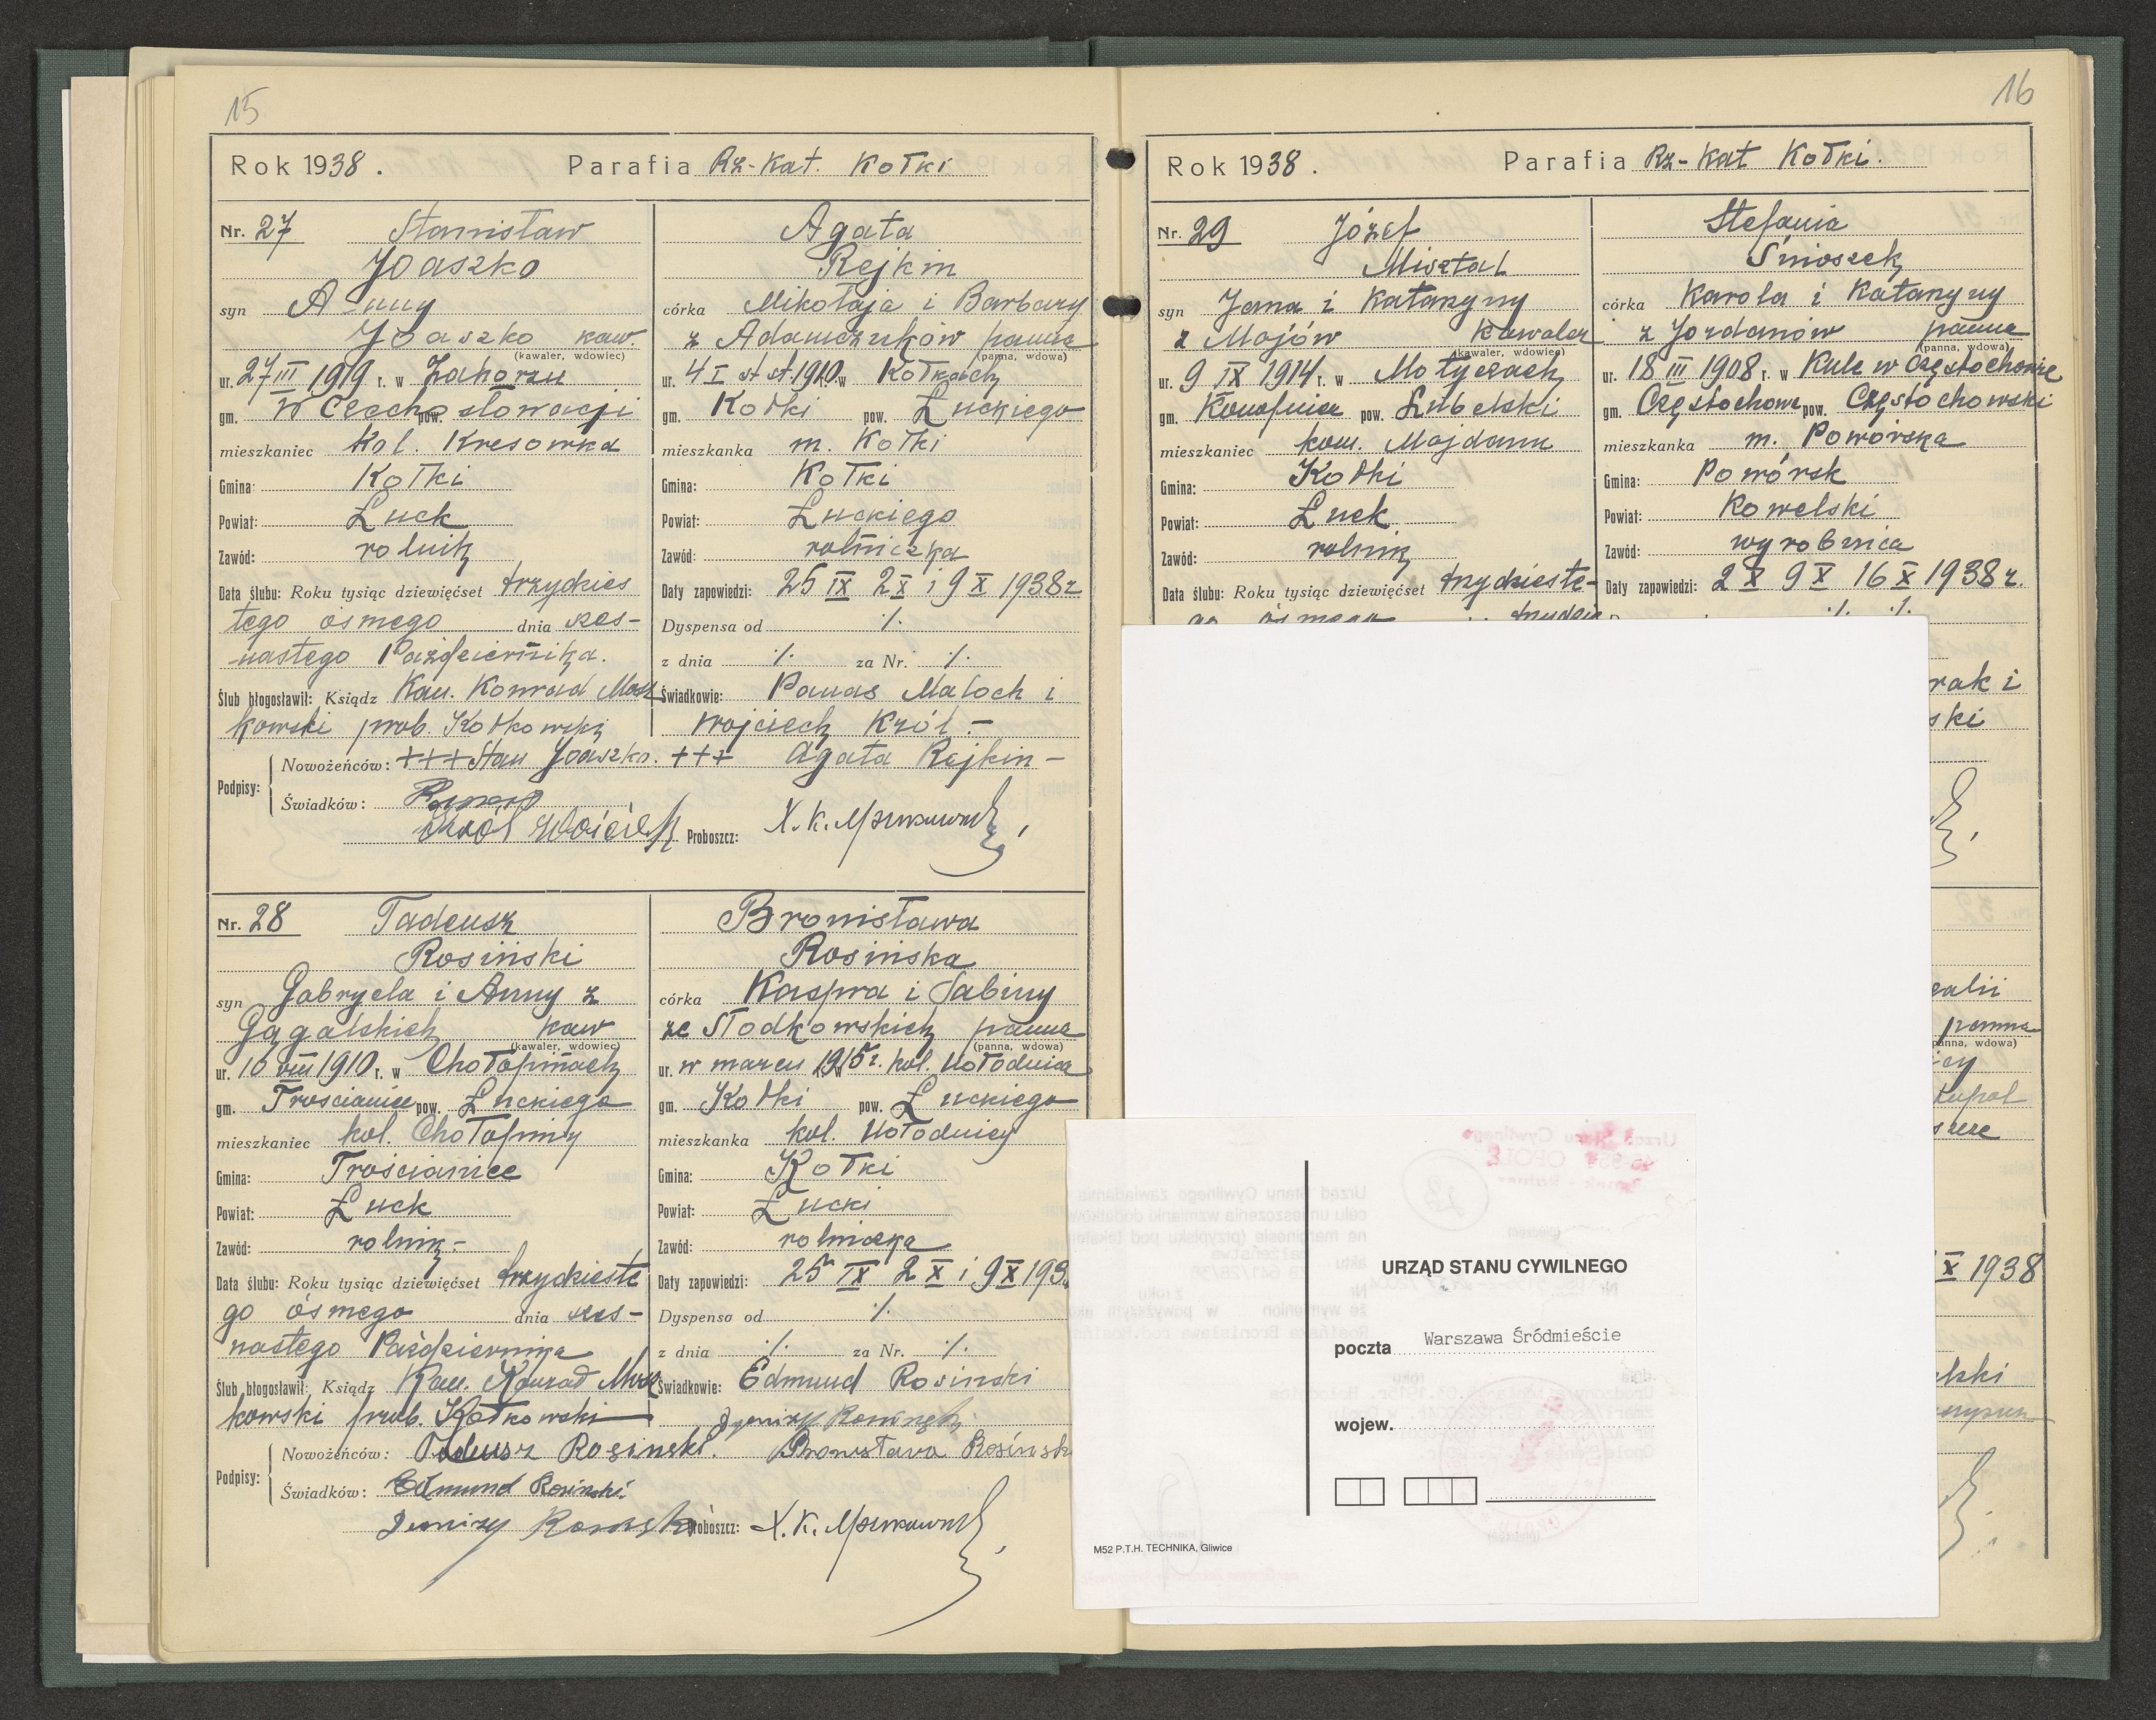 15
Rok 1938. Parafia Rz-Kat. Kołki
Nr. 27 Stanisław
Joaszko
syn Anny
Joaszko kaw.
(kawaler, wdowiec)
ur. 27 III 1919 r. w Zahorzu
gm. w Czechosłowacji pow.
mieszkaniec kol. Kresówka
Gmina: Kołki
Powiat: Łuck
Zawód: rolnik
Data ślubu: Roku tysiąc dziewięćset trzydzies
tego ósmego dnia szes-
nastego Października.
Ślub błogosławił: Ksiądz Kan. Konrad Mosz
kowski prob. Kołkowski
Agata
Rejkin
córka Mikołaja i Barbary
z Adamczuków panna
(panna, wdowa)
ur. 4 I st st. 1910 r. w Kołkach
gm. Kołki pow. Łuckiego
mieszkanka m. Kołki
Gmina: Kołki
Powiat: Łuckiego
Zawód: rolniczka
Daty zapowiedzi: 25 IX 2 X i 9 X 1938 r
Dyspensa od ./.
z dnia ./. za Nr. ./.
Świadkowie: Panas Matoch i
Wojciech Król.-
Podpisy:
Nowożeńców: +++ Stan Joaszko. +++ Agata Rejkin-
Świadków:
Król
Proboszcz: X. K.
Nr. 28 Tadeusz
Rosiński
syn Gabryela i Anny z
Gągalskich kaw
(kawaler, wdowiec)
ur. 10 VIII 1910 r. w Chołopinach
gm. Trościaniec pow. Łuckiego
mieszkaniec kol. Chołopiny
Gmina: Trościaniec
Powiat: Łuck
Zawód: rolnik-
Data ślubu: Roku tysiąc dziewięćset trzydzieste
go ósmego dnia szes-
nastego Października
Ślub błogosławił: Ksiądz Kan. Konrad Mosz
kowski prob. Kołkowski
Bronisława
Rosińska
córka Kaspra i Sabiny
ze Słodkowskich panna
(panna, wdowa)
ur. w marcu 1915 r. w kol. Hołodnica
gm. Kołki pow. Łuckiego
mieszkanka kol. Hołodnicy
Gmina: Kołki
Powiat: Łucki
Zawód: rolniczka
Daty zapowiedzi: 25 IX 2 X i 9 X 193
Dyspensa od ./.
z dnia ./. za Nr. ./.
Świadkowie: Edmund Rosiński
Podpisy:
Nowożeńców: Tadeusz Rosiński. Bronisława Rosińsk
Świadków: Edmund Rosiński
Proboszcz: X. K.
16
Rok 1938. Parafia Rz-Kat Kołki.
Nr. 29 Józef
Misztal
syn Jana i Katarzyny
z Majów kawaler
(kawaler, wdowiec)
ur. 9 IX 1914 r. w Motyczach
gm. Konopnica pow. Lubelski
mieszkaniec kom. Majdanu
Gmina: Kołki
Powiat: Łuck
Zawód: rolnik
Data ślubu: Roku tysiąc dziewięćset trzydzieste-
go ósmego
Stefania
Śnioszek
córka Karola i Katarzyny
z Jordanów panna
(panna, wdowa)
ur. 18 III 1908 r. w Kule w Częstochowie
gm. Częstochowa pow. Częstochowski
mieszkanka m. Powórska
Gmina: Powórsk
Powiat: Kowelski
Zawód: wyrobnica
Daty zapowiedzi: 2 X 9 X 16 X 1938 r.
./. ./.
rak i
ski
panna
(panna, wdowa)
X 1938
URZĄD STANU CYWILNEGO
poczta Warszawa Śródmieście
wojew.
M52 P.T.H. TECHNIKA, Gliwice